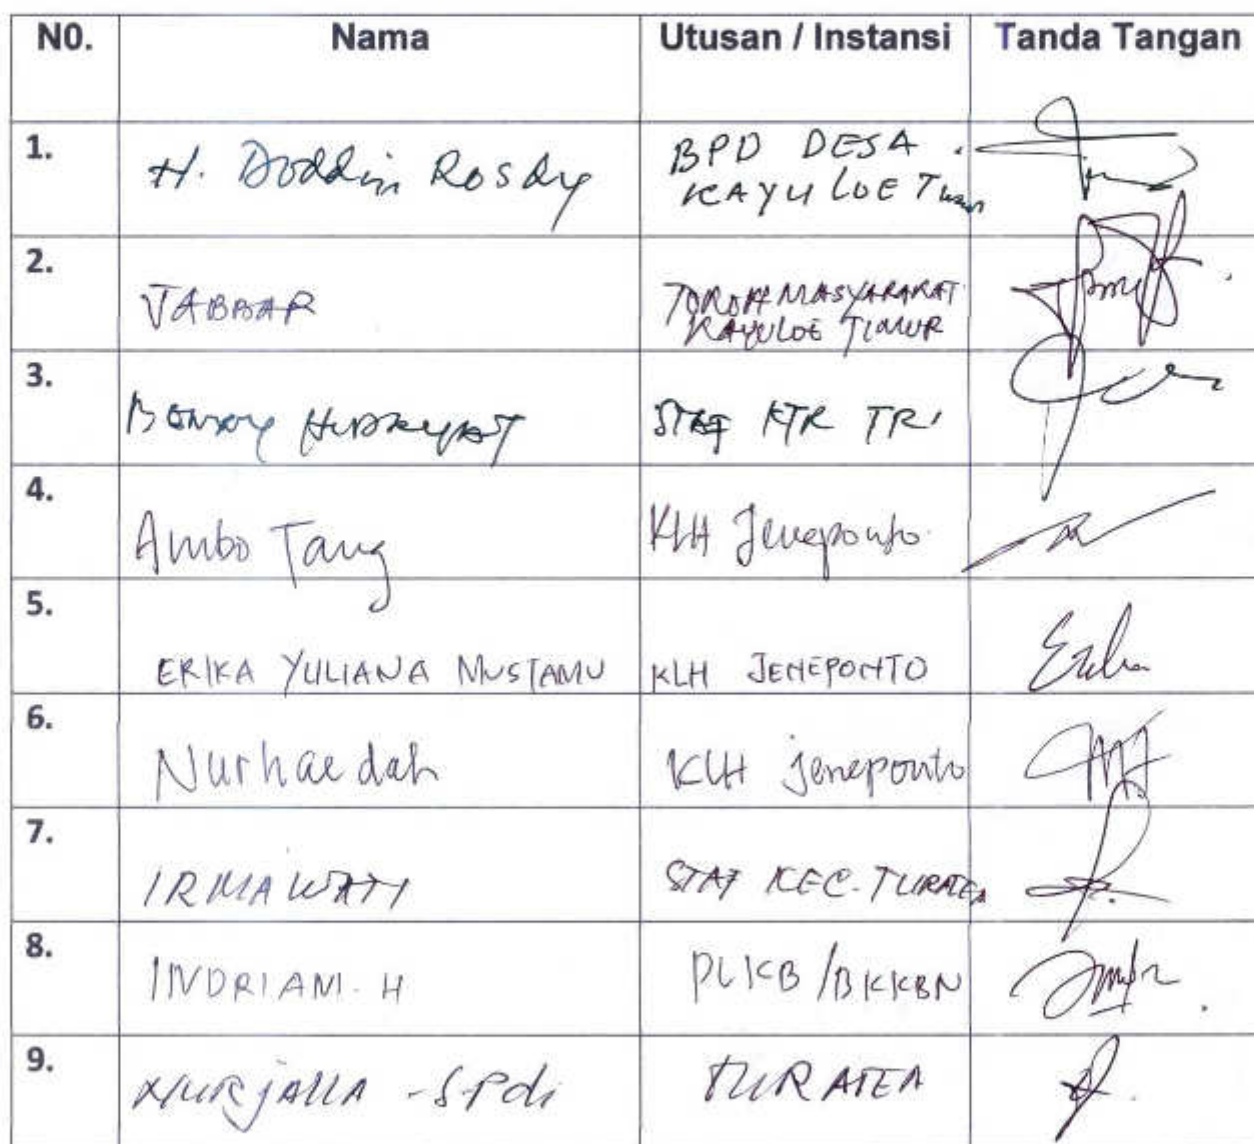 N0. Nama Utusan / Instansi Tanda Tangan
1. H. Doddin Rosdy BPD DESA
KAYU LOE Timur
2. JABBAR TOKOH MASYARAKAT
KAYULOE TIMUR
3. HIDAYAT STAF KTR TRI
4. Ambo Tang KLH Jeneponto
5. ERIKA YULIANA MUSTAMU KLH JENEPONTO
6. Nurhaedah KLH jeneponto
7. IRMAWATI STAF KEC. TURATEA
8. INDRIANI. H PLKB /BKKBN
9. NURJALLA -S.Pdi TURATEA